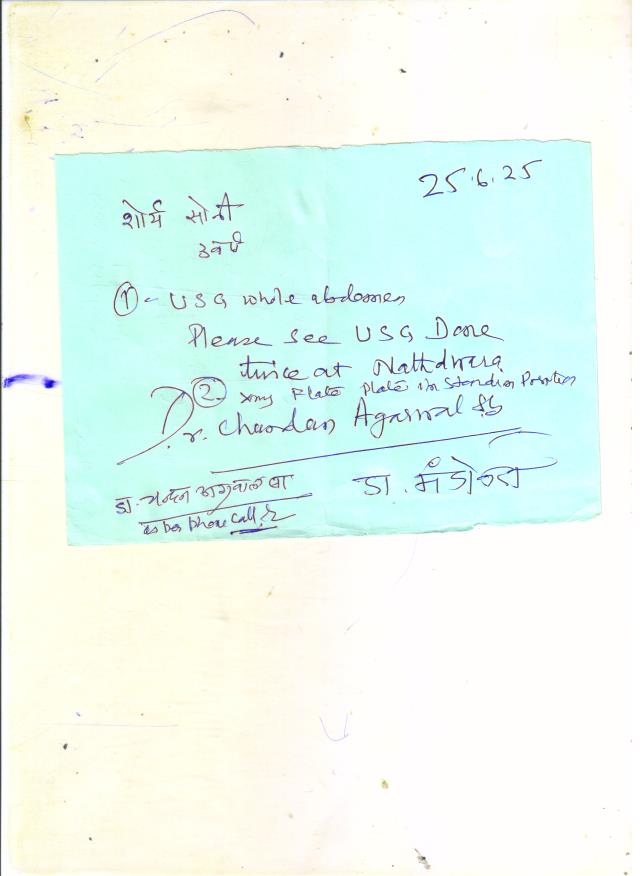 25.6.25
शोर्य सोनी
3 वर्ष
① - USG whole abdomen
Please See USG Done
twice at Nathdwara
② xray Flate Plate in Standing Position
Dr. Chandan Agarwal
डा. चन्दन अग्रवाल सा
as per phone call
डा.